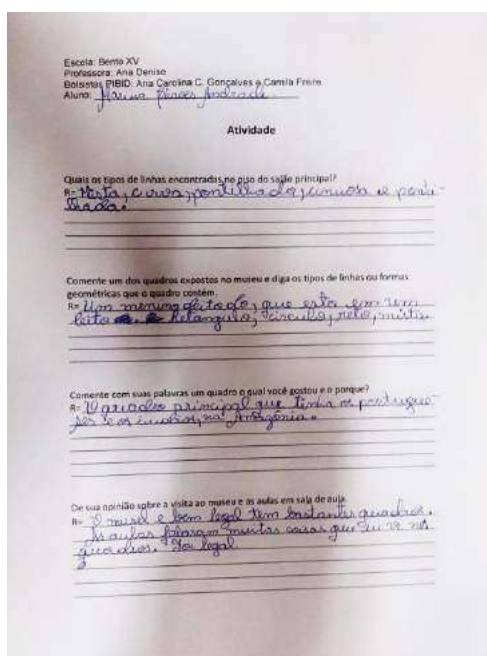 Escola: Bento XV
Professora: Ana Denise
Bolsistas PIBID: Ana Carolina C. Gonçalves e Camila Freire
Aluno: Marina Andrade
Atividade
Quais os tipos de linhas encontradas no piso do salão principal?
R= Mista, curva, pontilhada, sinuosa e ponti-
lhada.
Comente um dos quadros expostos no museu e diga os tipos de linhas ou formas
geométricas que o quadro contém.
R= Um menino deitado, que esta em um
leito retangulo, circulo, reto, mista
Comente com suas palavras um quadro o qual você gostou e o porque?
R= O quadro principal que tinha os portugue-
ses e os na Amazônia.
De sua opinião sobre a visita ao museu e as aulas em sala de aula.
R= O museu é bem legal tem bastantes quadros.
As aulas falaram muitas coisas que eu vi nos
quadros. Foi legal